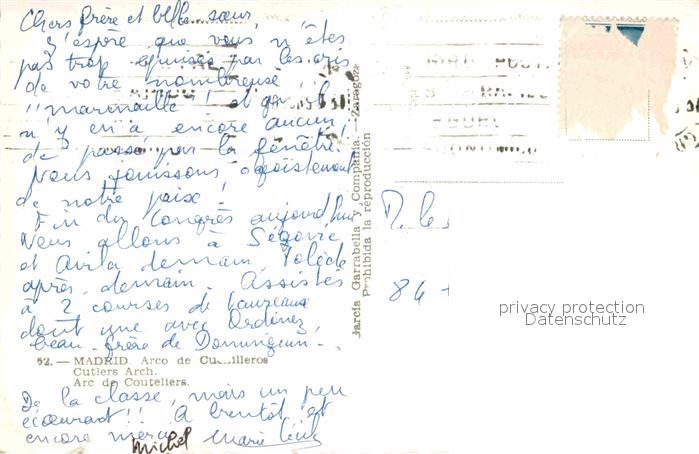 Chers frère et belle sœur,
J'espère que vous n'êtes
pas trop épuisés par les cris
de votre nombreuse
"marmaille" ! et qu'il
n'y en a encore aucun
de passé par la fenêtre.
Nous jouissons égoïstement
de notre paix !
Fin du Congrès aujourd'hui
Nous allons à Ségovie
et Avila demain Tolède
après-demain. Assistés
à 2 courses de taureaux
dont une avec Ordonez,
beau-frère de Dominguin.
62. — MADRID. Arco de Cuchilleros
Cutlers Arch.
Arc de Couteliers.
De la classe, mais un peu
écœurant !! A bientôt et
encore merci
Michel Marie
García Garrabella y Compañía. — Zaragoza
Prohibida la reproducción
84
privacy protection
Datenschutz